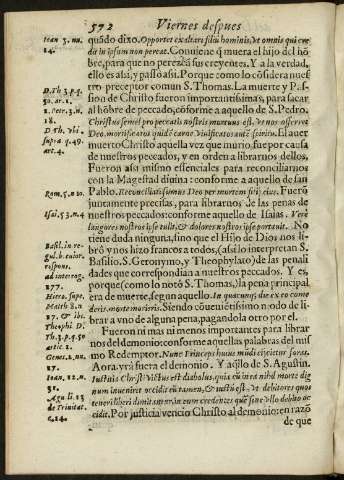 572 Viernes despues
Ioan 3. nu.
14.
quãdo dixo. Oportet exaltari filiũ hominis, vt omnis qui cre
dit in ipsum non pereat. Conuiene q̃ muera el hijo del hõ
bre, para que no perezcã sus creyentes. Y a la verdad,
ello es assi, y passo assi. Porque como lo cõsidera nues
D. Th. 3. p. q.
50. ar. 1.
tro preceptor comun S. Thomas. La muerte y Pas
sion de Christo fueron importantissimas, para sacar
1. Petr. 3. n.
18.
al hõbre de peccado, cõforme a aquello de S. Pedro.
Christus semel pro peccatis nostris mortuus est, vt nos offerret
D. Th. vbi
supra q. 49.
art. 4.
Deo, mortificatos quidẽ carne viuificatos autẽ spiritu. El auer
muerto Christo aquella vez que murio, fue por causa
de nuestros peccados, y en orden a librarnos dellos.
Fueron assi mismo essenciales para reconciliarnos
con la Magestad diuina: conforme a aquello de san
Rom. 5. n. 10.
Pablo. Reconciliati sumus Deo per mortem filij eius. Fuerõ
juntamente precissas, para librarnos de las penas de
Isai. 53. n. 4
nuestros peccados: conforme aquello de Isaias. Verè
langores nostros ipse tulit, & dolores nostros ipse portauit. No
tiene duda ninguna, sino que el Hijo de Dios nos li
Basil. in re-
gul. b. euior.
respons.
ad interrog.
277.
brô y nos hizo francos a todos, (assi lo interpretan S.
Basilio, S. Geronymo, y Theophylato) de las penali
dades que correspondian a nuestros peccados. Y es,
porque (como lo notô S. Thomas,) la pena principal
Hiero. supe.
Math 8. n
17. & ibi
Theophi D.
Th. 3. p. q. 50
artic. 1.
era de muerte, segun aquello. In quacunq; die ex eo come
deris, morte morieris. Siendo conuenientissimo modo de li
brar a vno de alguna pena, pagandola otro por el.
Fueron ni mas ni menos importantes para librar
nos del demonio: conforme aquellas palabras del mis
Genes. 2. nu.
17.
mo Redemptor. Nunc Princeps huius mũdi eijcietur foras.
Aora yrâ fuera el demonio. Y aq̃llo de S. Agustin.
Ioan. 12. n.
31.
Aug li. 13
de Trinitat.
c. 14.
Iustitia Christi victus est diabolus, quia cũ in eo nihil morte dig
num inueniret occidit eũ tamen, & iustũ est, vt debitores quos
tenebat liberi dimittantur, in eum credentes quẽ sine vllo debito oc
cidit. Por justicia vencio Christo al demonio: en razõ
de que